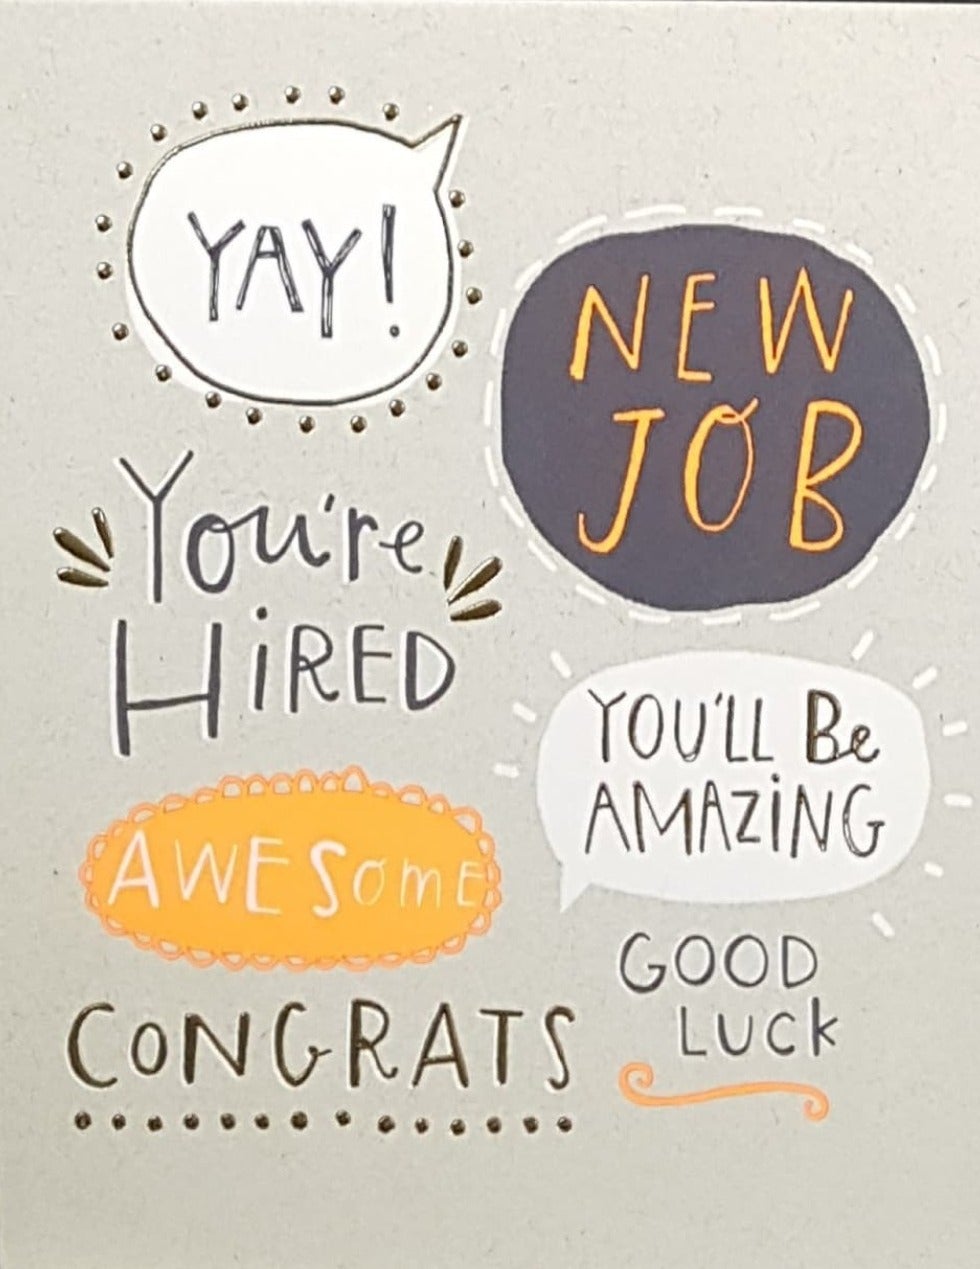 YAY!
NEW
JOB
You're
HiRED
YOU'LL Be
AMAZiNG
AWESOmE
GOOD
LUCK
CONGRATS